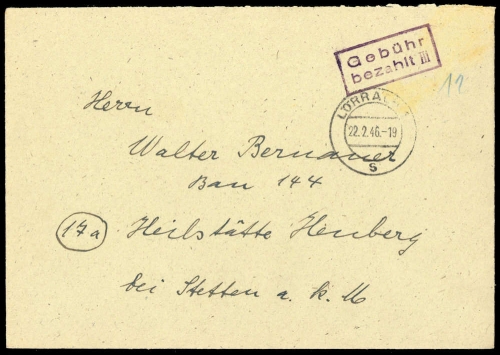 Gebühr
bezahlt III
12
LÖRRACH 1
22.2.46.-19
S
Herrn
Walter Bernauer
Bau 144
17a
Heilstätte Heuberg
bei Stetten a. k. M